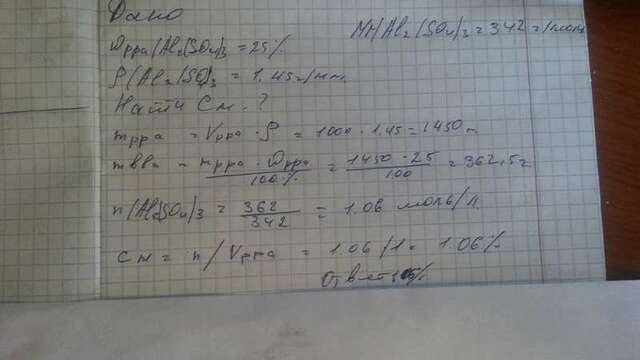 Дано
ωр-ра(Al₂(SO₄)₃ = 25%
M(Al₂(SO₄)₃ = 342 г/моль
ρ(Al₂(SO₄)₃ = 1,45 г/мл
Найти См - ?
mр-ра = Vр-ра · ρ = 1000 · 1,45 = 1450 г
mв-ва = mр-ра · ωр-ра / 100% = 1450 · 25 / 100 = 362,5 г
n(Al₂(SO₄)₃ = 362 / 342 = 1.06 моль/л
См = n/Vр-ра = 1.06/1 = 1.06%
Ответ